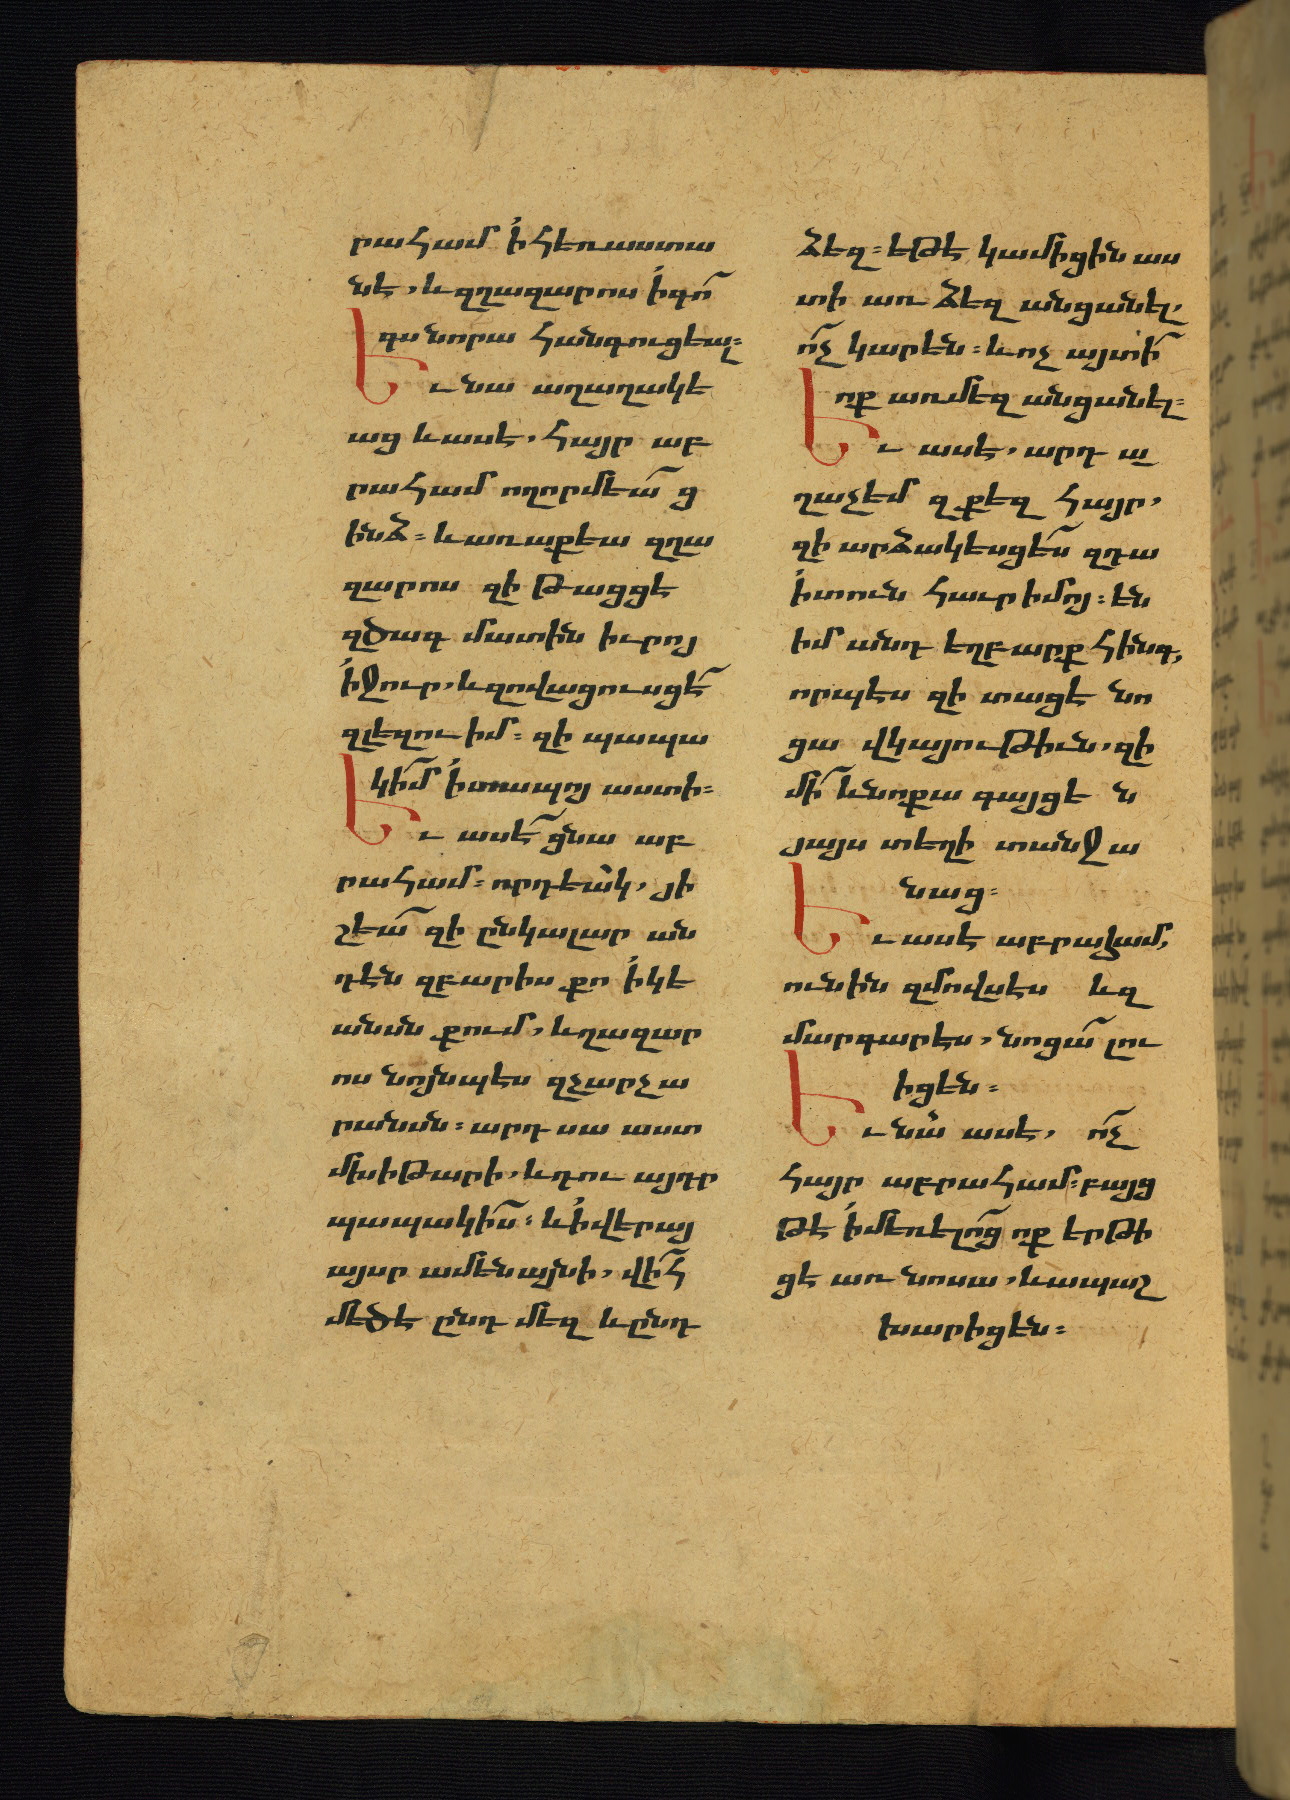 րահամ ՛ի հեռաստա
նէ, և զղազարոս ՛ի գո՜
գս նորա հանգուցեալ։
Ե
ւ նա աղաղակե
աց և ասէ, հայր աբ
րահամ ողորմեա՜ ց
ինձ։ և առաքեա զղա
զարոս զի թացցէ
զծագ մատին իւրոյ
՛ի ջուր, և զովացուսցէ՜
զլեզու իմ։ զի պապա
կի՜մ ՛ի տապոյ աստի։
Ե
ւ ասէ՜ ցնա աբ
րահամ։ որդեա՛կ, յի
շեա՜ զի ընկալար ան
դէն զբարիս քո ՛ի կե
անսն քում, և ղազար
ոս նոյնպէս զչարչա
րանսն։ արդ սա աստ
մխիթարի, և դու այդր
պապակի՜ս։ և ՛ի վերայ
այսր ամենայնի, վի՜հ
մեծ է ընդ մեզ և ընդ
ձեզ։ եթէ կամիցին աս
տի առ ձեզ անցանել,
ո՜չ կարեն։ և ոչ այտի՜
ոք առ մեզ անցանել։
Ե
ւ ասէ, արդ ա
ղաչեմ զքեզ հայր,
զի արձակեսցե՜ս զդա
՛ի տուն հաւր իմոյ։ են
իմ անդ եղբարք հինգ,
որպէս զի տացէ նո
ցա վկայութիւն, զի
մի՜ և նոքա գայցեն
յայս տեղի տանջա
նաց։
Ե
ւ ասէ աբրահամ,
ունին զմովսէս և զ
մարգարէս, նոցա՜ լու
իցեն։
Ե
ւ նա՜ ասէ, ո՜չ
հայր աբրահամ։ բայց
թէ ՛ի մեռելո՜ց ոք երթի
ցէ առ նոսա, և ապաշ
խարիցեն։